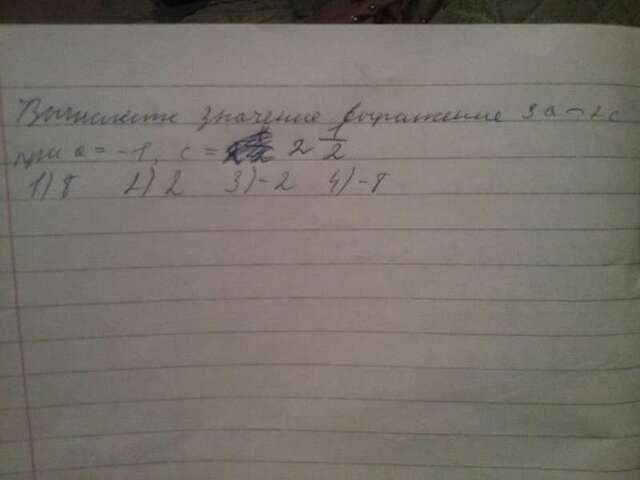 Вычислите значение выражение 3a-2c
при a=-1, c= 2 1/2
1) 8 2) 2 3) -2 4) -8